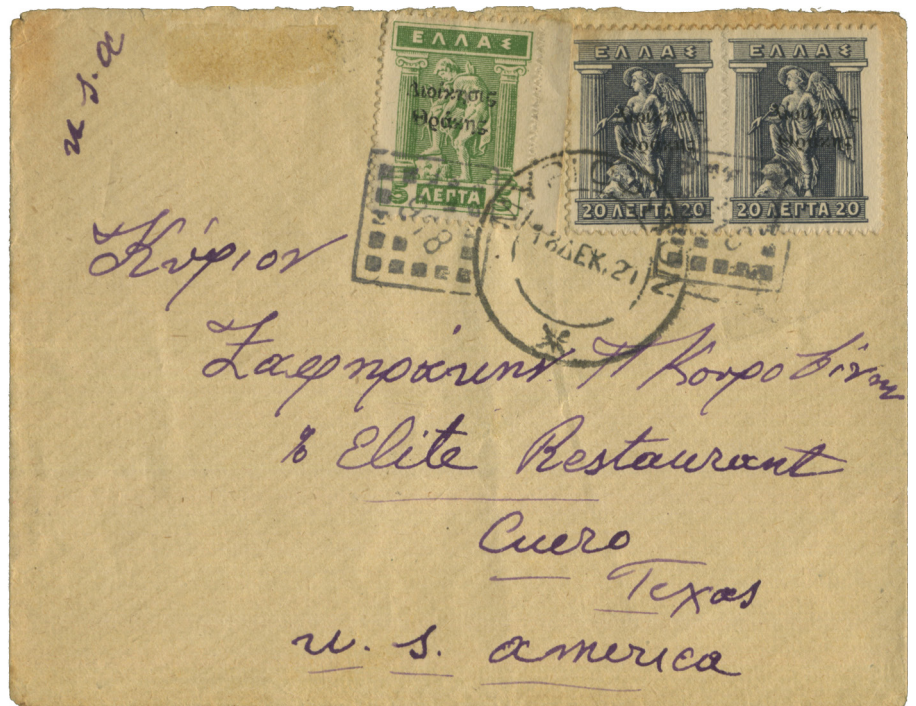 u. s. a
ΕΛΛΑΣ
Διοίκησις
Θράκης
5 ΛΕΠΤΑ 5
ΕΛΛΑΣ
Διοίκησις
Θράκης
20 ΛΕΠΤΑ 20
ΕΛΛΑΣ
Διοίκησις
Θράκης
20 ΛΕΠΤΑ 20
18 ΔΕΚ. 21
Κύριον
Ζαφηράκην Π Κουροβίνην
% Elite Restaurant
Cuero
Texas
u. s. america